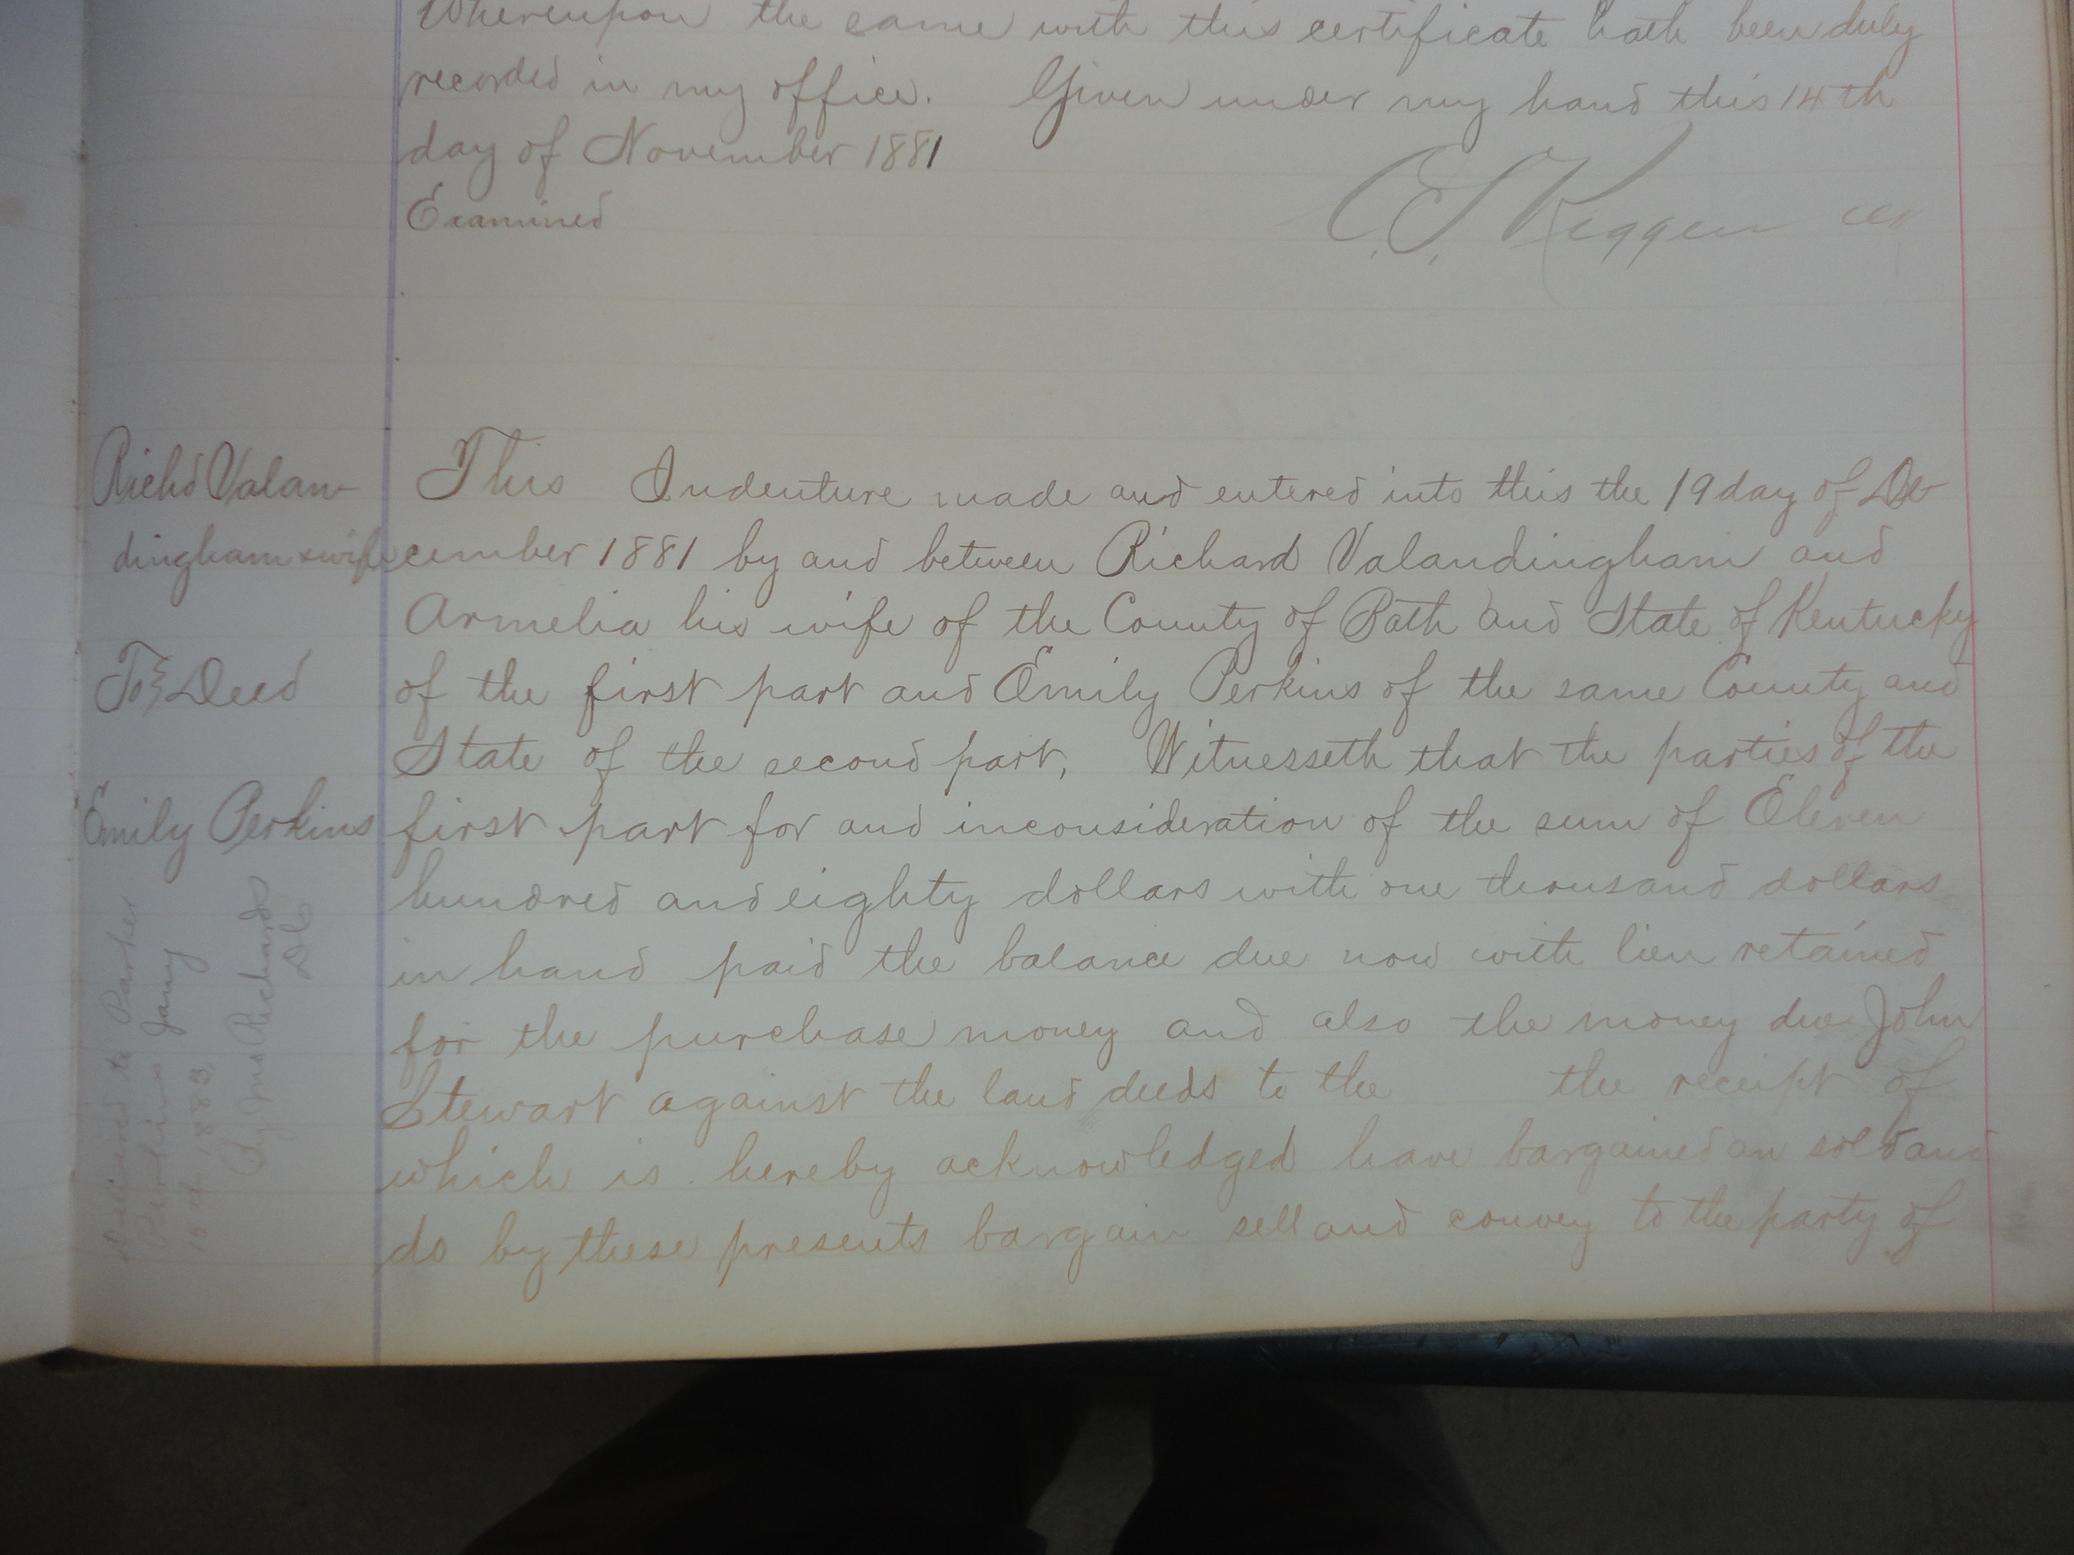 Whereupon the same with this certificate hath been duly
recorded in my office. Given under my hand this 14th
day of November 1881
Examined
Richd Valan-
dingham & wife
To } Deed
Emily Perkins
Delivered to Parker
Perkins Jany
15th 1883,
By Jno Richards
DC
This Indenture made and entered into this the 19 day of De
cember 1881 by and between Richard Valandingham and
Armelia his wife of the County of Bath and State of Kentucky
of the first part and Emily Perkins of the same County and
State of the second part, Witnesseth that the parties of the
first part for and inconsideration of the sum of Eleven
hundred and eighty dollars with one thousand dollars
in hand paid the balance due now with lien retained
for the purchase money and also the money due John
Stewart against the land deeds to the the receipt of
which is hereby acknowledged have bargained an sold and
do by these presents bargain sell and convey to the party of